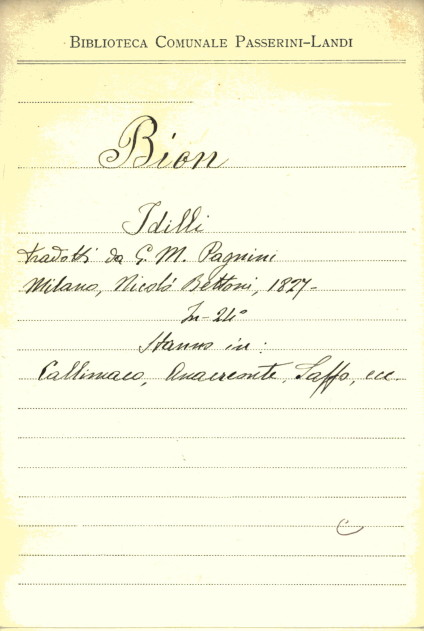 BIBLIOTECA COMUNALE PASSERINI-LANDI
Bion
Idilli
tradotti da G. M. Pagnini
Milano, Nicolò Bettoni, 1827-
In-24°
Stanno in:
Callimaco, Anacreonte, Saffo, ecc.